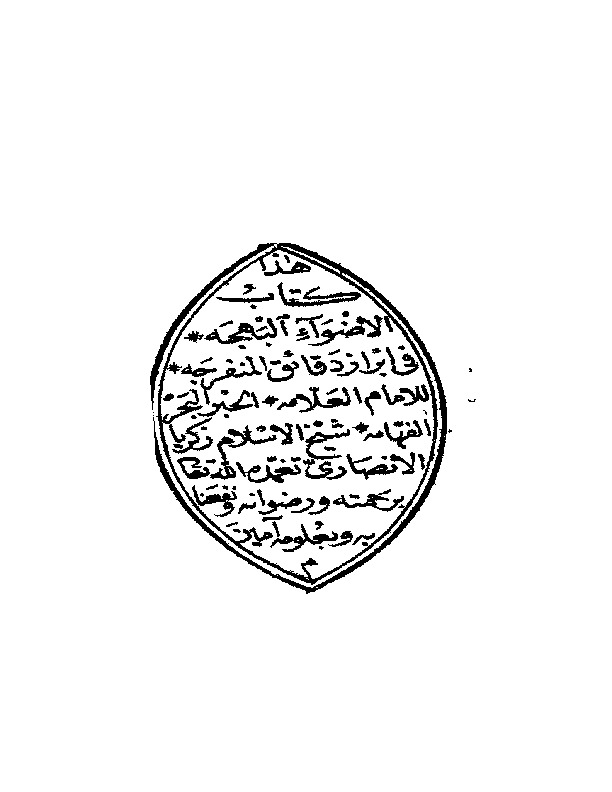 هذا
كتاب
الاضوآء البهجه *
فى ابراز دقائق المنفرجه *
للامام العلامه * الحبر البحر
الفهامه * شيخ الاسلام زكريا
الانصارى تغمده الله تعا
برحمته ورضوانه ونفعنا
به وبعلومه آمين
م